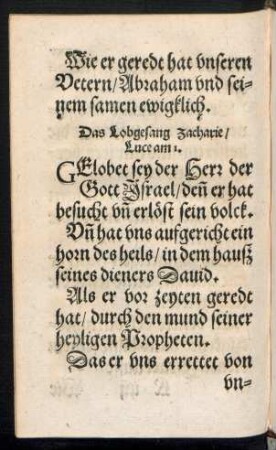 Wie er geredt hat vnseren
Vetern/Abraham vnd sei-
nem samen ewigklich.
Das Lobgesang Zacharie/
Luce am 1.
GElobet sey der Herr der
Gott Jsrael/deñ er hat
besucht vñ erlöst sein volck.
Vñ hat vns aufgericht ein
horn des heils/in dem hauß
seines dieners Dauid.
Als er vor zeyten geredt
hat/durch den mund seiner
heyligen Propheten.
Das er vns errettet von
vn-